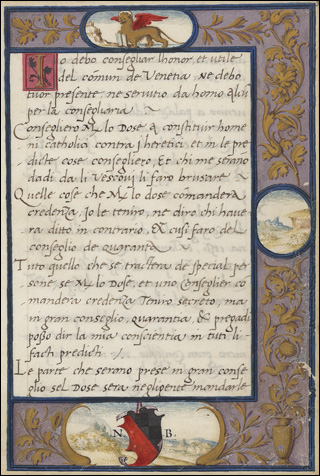 Io debo consegliar lhonor, et utile
del comun de Venetia, Ne debo
tuor presente, ne servitio da homo
per la consegliaria
Consegliero M. lo Dose, a constituir home
ni catholici contra i heretici, et in le pre
dicte cose consegliero, Et chi me serano
dadi da li Vescovi li faro brusare
Quelle cose che M. lo dose comandera
credenza, Io le teniro, ne diro chi have
ra ditto in contrario, Et cusi faro del
conseglio de quaranta
Tuto quello che se tractera de special per
sone, se M. lo Dose, et uno Conseglier co
mandera credenza Teniro secreto, ma
in gran conseglio, Quarantia, & pregadi
posso dir la mia conscientia in tuti li
facti predicti
Le parte che serano prese in gran conse
glio sel Dose sera negligente mandarle
N B.